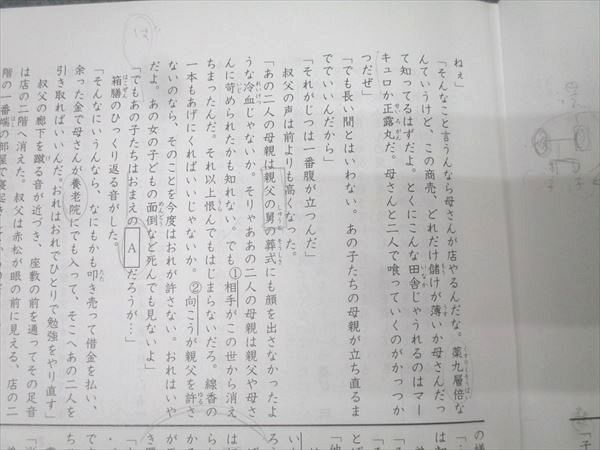 ねぇ」
「そんなこと言うんなら母さんが店やるんだな。薬九層倍な
んていうけど、この商売、どれだけ儲けが薄いか母さんだっ
て知ってるはずだよ。とくにこんな田舎じゃうれるのはマー
キュロか正露丸だ。母さんと二人で喰っていくのがかっつか
つだぜ」
「でも長い間とはいわない。あの子たちの母親が立ち直るま
ででいいんだから」
「それがじつは一番腹が立つんだ」
叔父の声は前よりも高くなった。
「あの二人の母親は親父の舅の葬式にも顔を出さなかったよ
うな冷血じゃないか。そりゃああの二人の母親は親父や母さ
んに苛められたかも知れない。でも①相手がこの世から消え
ちまったんだ。それ以上恨んでもはじまらないだろ。線香の
一本もあげにくればいいじゃないか。②向こうが親父を許さ
ないのなら、そのことを今度はおれが許さない。おれはいや
だよ。あの女の子どもの面倒など死んでも見ないよ」
「でもあの子たちはおまえの A だろうが…」
箱膳のひっくり返る音がした。
「そんなにいうんなら、なにもかも叩き売って借金を払い、
余った金で母さんが養老院にでも入って、そこへあの二人を
引き取ればいいんだ。おれはおれでひとりで勉強をやり直す」
叔父の廊下を蹴る音が近づき、座敷の前を通ってその足音
は店の二階へ消えた。叔父は赤松が眼の前に見える、店の二
階の一番端の部屋で寝起き